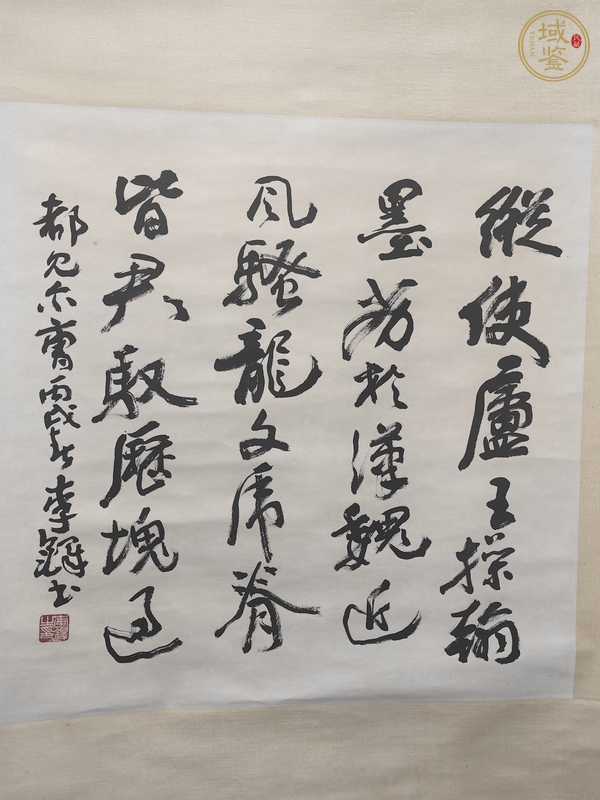 縱使盧王操翰
墨劣於漢魏近
风騷龍文虎脊
皆君馭歷塊過
都見尔曹丙戌秋李鐸書
域鉴